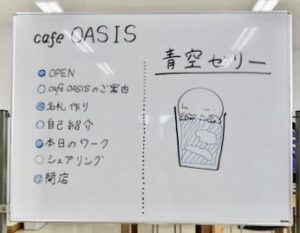 cafe OASIS
OPEN
cafe OASISのご案内
名札作り
自己紹介
本日のワーク
シェアリング
閉店
青空ゼリー